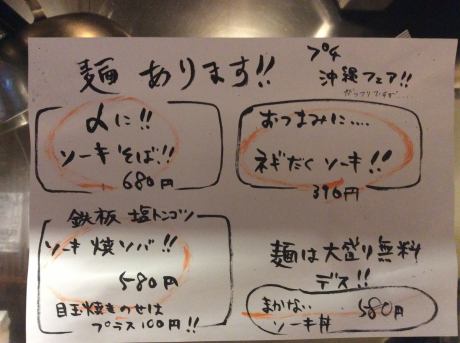 麺あります!!
プチ
沖縄フェア!!
〆に!!
ソーキそば!!
680円
おつまみに....
ネギだくソーキ!!
390円
鉄板 塩トンコツ
ソーキ焼ソバ!!
580円
目玉焼きのせは
プラス100円!!
麺は大盛り無料
デス!!
まかない
ソーキ丼
580円